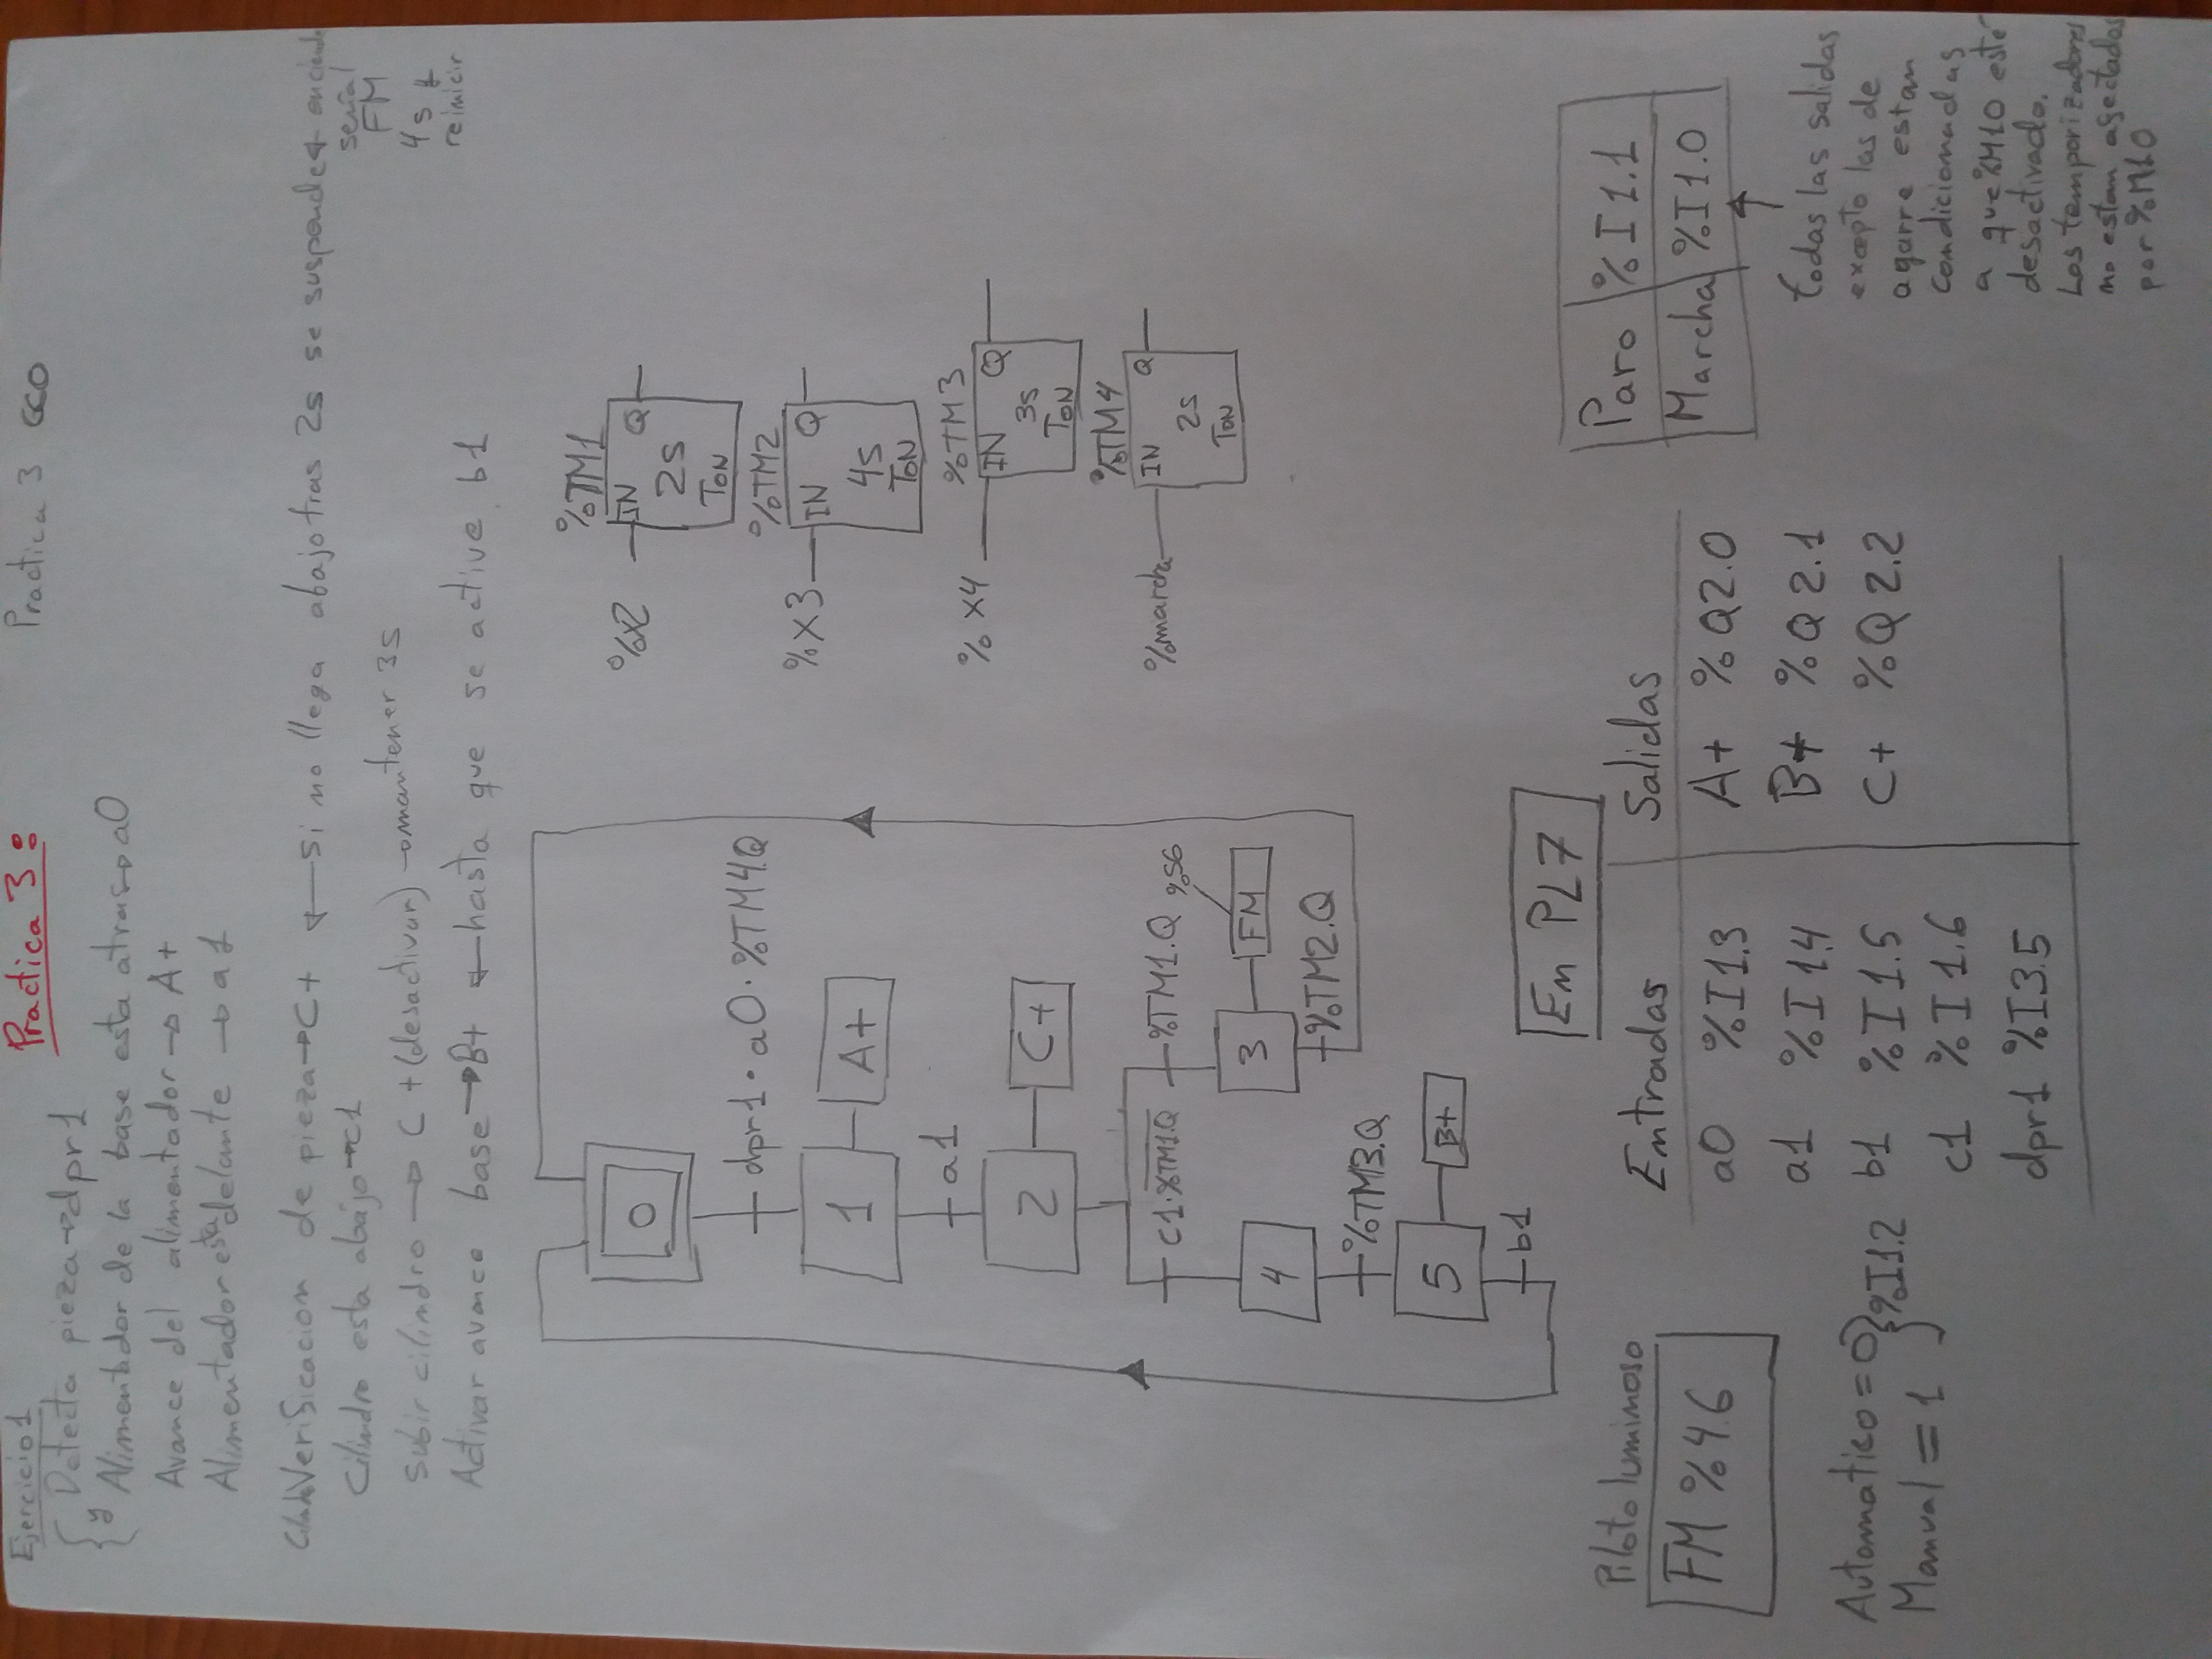 Ejercicio1
Practica 3:
Practica 3 CCO
{ Detecta pieza→dpr1
y Alimentador de la base esta atras→a0
Avance del alimentador → A+
Alimentador está delante → a1
Verificacion de pieza→C+ ← si no llega abajo tras 2s se suspende y enciende
señal
FM
4s y
reinicir
Cilindro esta abajo→c1
subir cilindro → C+(desactivar) →mantener 3s
Activar avance base→B+ ←hasta que se active b1
0
dpr1·a0·%TM4.Q
1 A+
a1
2 C+
c1·%TM1.Q
%TM1.Q %S6
4
3 FM
%TM2.Q
%TM3.Q
5 B+
b1
%TM1
%X2 IN Q
2s
TON
%TM2
%X3 IN Q
4s
TON
%TM3
%X4 IN Q
3s
TON
%TM4
%marcha IN Q
2s
TON
En PL7
Piloto luminoso
FM %4.6
Automatico = 0
Manual = 1
} %I1.2
Entradas Salidas
a0 %I1.3 A+ %Q2.0
a1 %I1.4 B+ %Q2.1
b1 %I1.5 C+ %Q2.2
c1 %I1.6
dpr1 %I3.5
Paro %I1.1
Marcha %I1.0
todas las salidas
excepto las de
agarre estan
condicionadas
a que %M10 esté
desactivado.
Los temporizadores
no estan afectados
por %M10